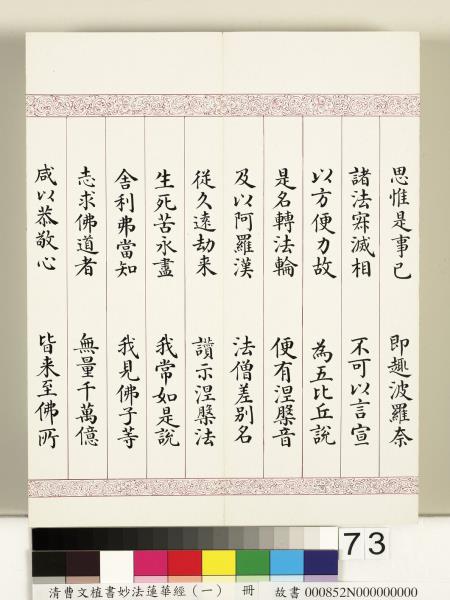 思惟是事已　即趣波羅奈
諸法寂滅相　不可以言宣
以方便力故　為五比丘說
是名轉法輪　便有涅槃音
及以阿羅漢　法僧差別名
從久遠劫来　讚示涅槃法
生死苦永盡　我常如是說
舍利弗當知　我見佛子等
志求佛道者　無量千萬億
咸以恭敬心　皆来至佛所
73
清曹文植書妙法蓮華經（一）　冊　故書 000852N000000000